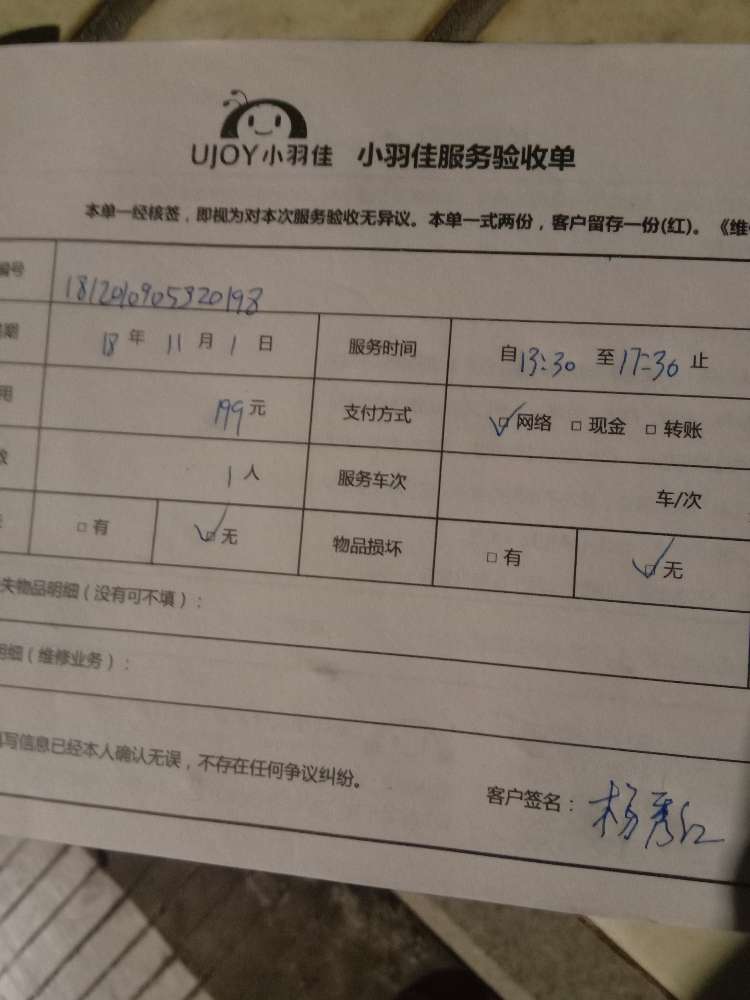 UJOY小羽佳 小羽佳服务验收单
本单一经核签，即视为对本次服务验收无异议。本单一式两份，客户留存一份(红)。《维
编号 1812010905320198
期 18年 11月 1日 服务时间 自13:30 至17:30止
用 199元 支付方式 ☑网络 □现金 □转账
数 1人 服务车次 车/次
□有 ☑无 物品损坏 □有 ☑无
失物品明细（没有可不填）：
明细（维修业务）：
填写信息已经本人确认无误，不存在任何争议纠纷。
客户签名：杨秀红